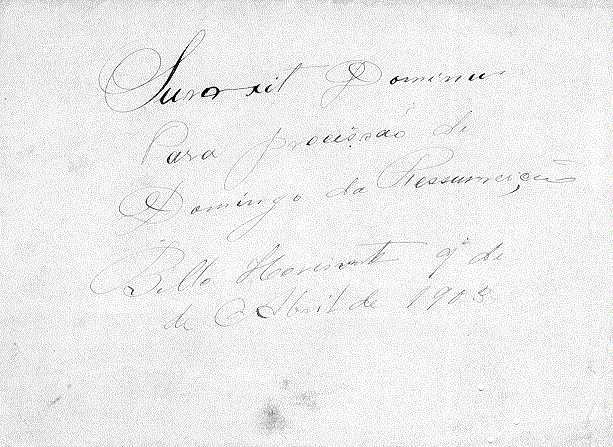 Surrexit Dominus
Para procissaõ de
Domingo da Ressurreição
Bello Horizonte 9 de
de Abril de 1903